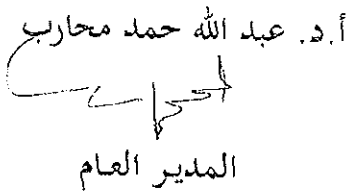 أ.د. عبد الله حمد محارب
المدير العام